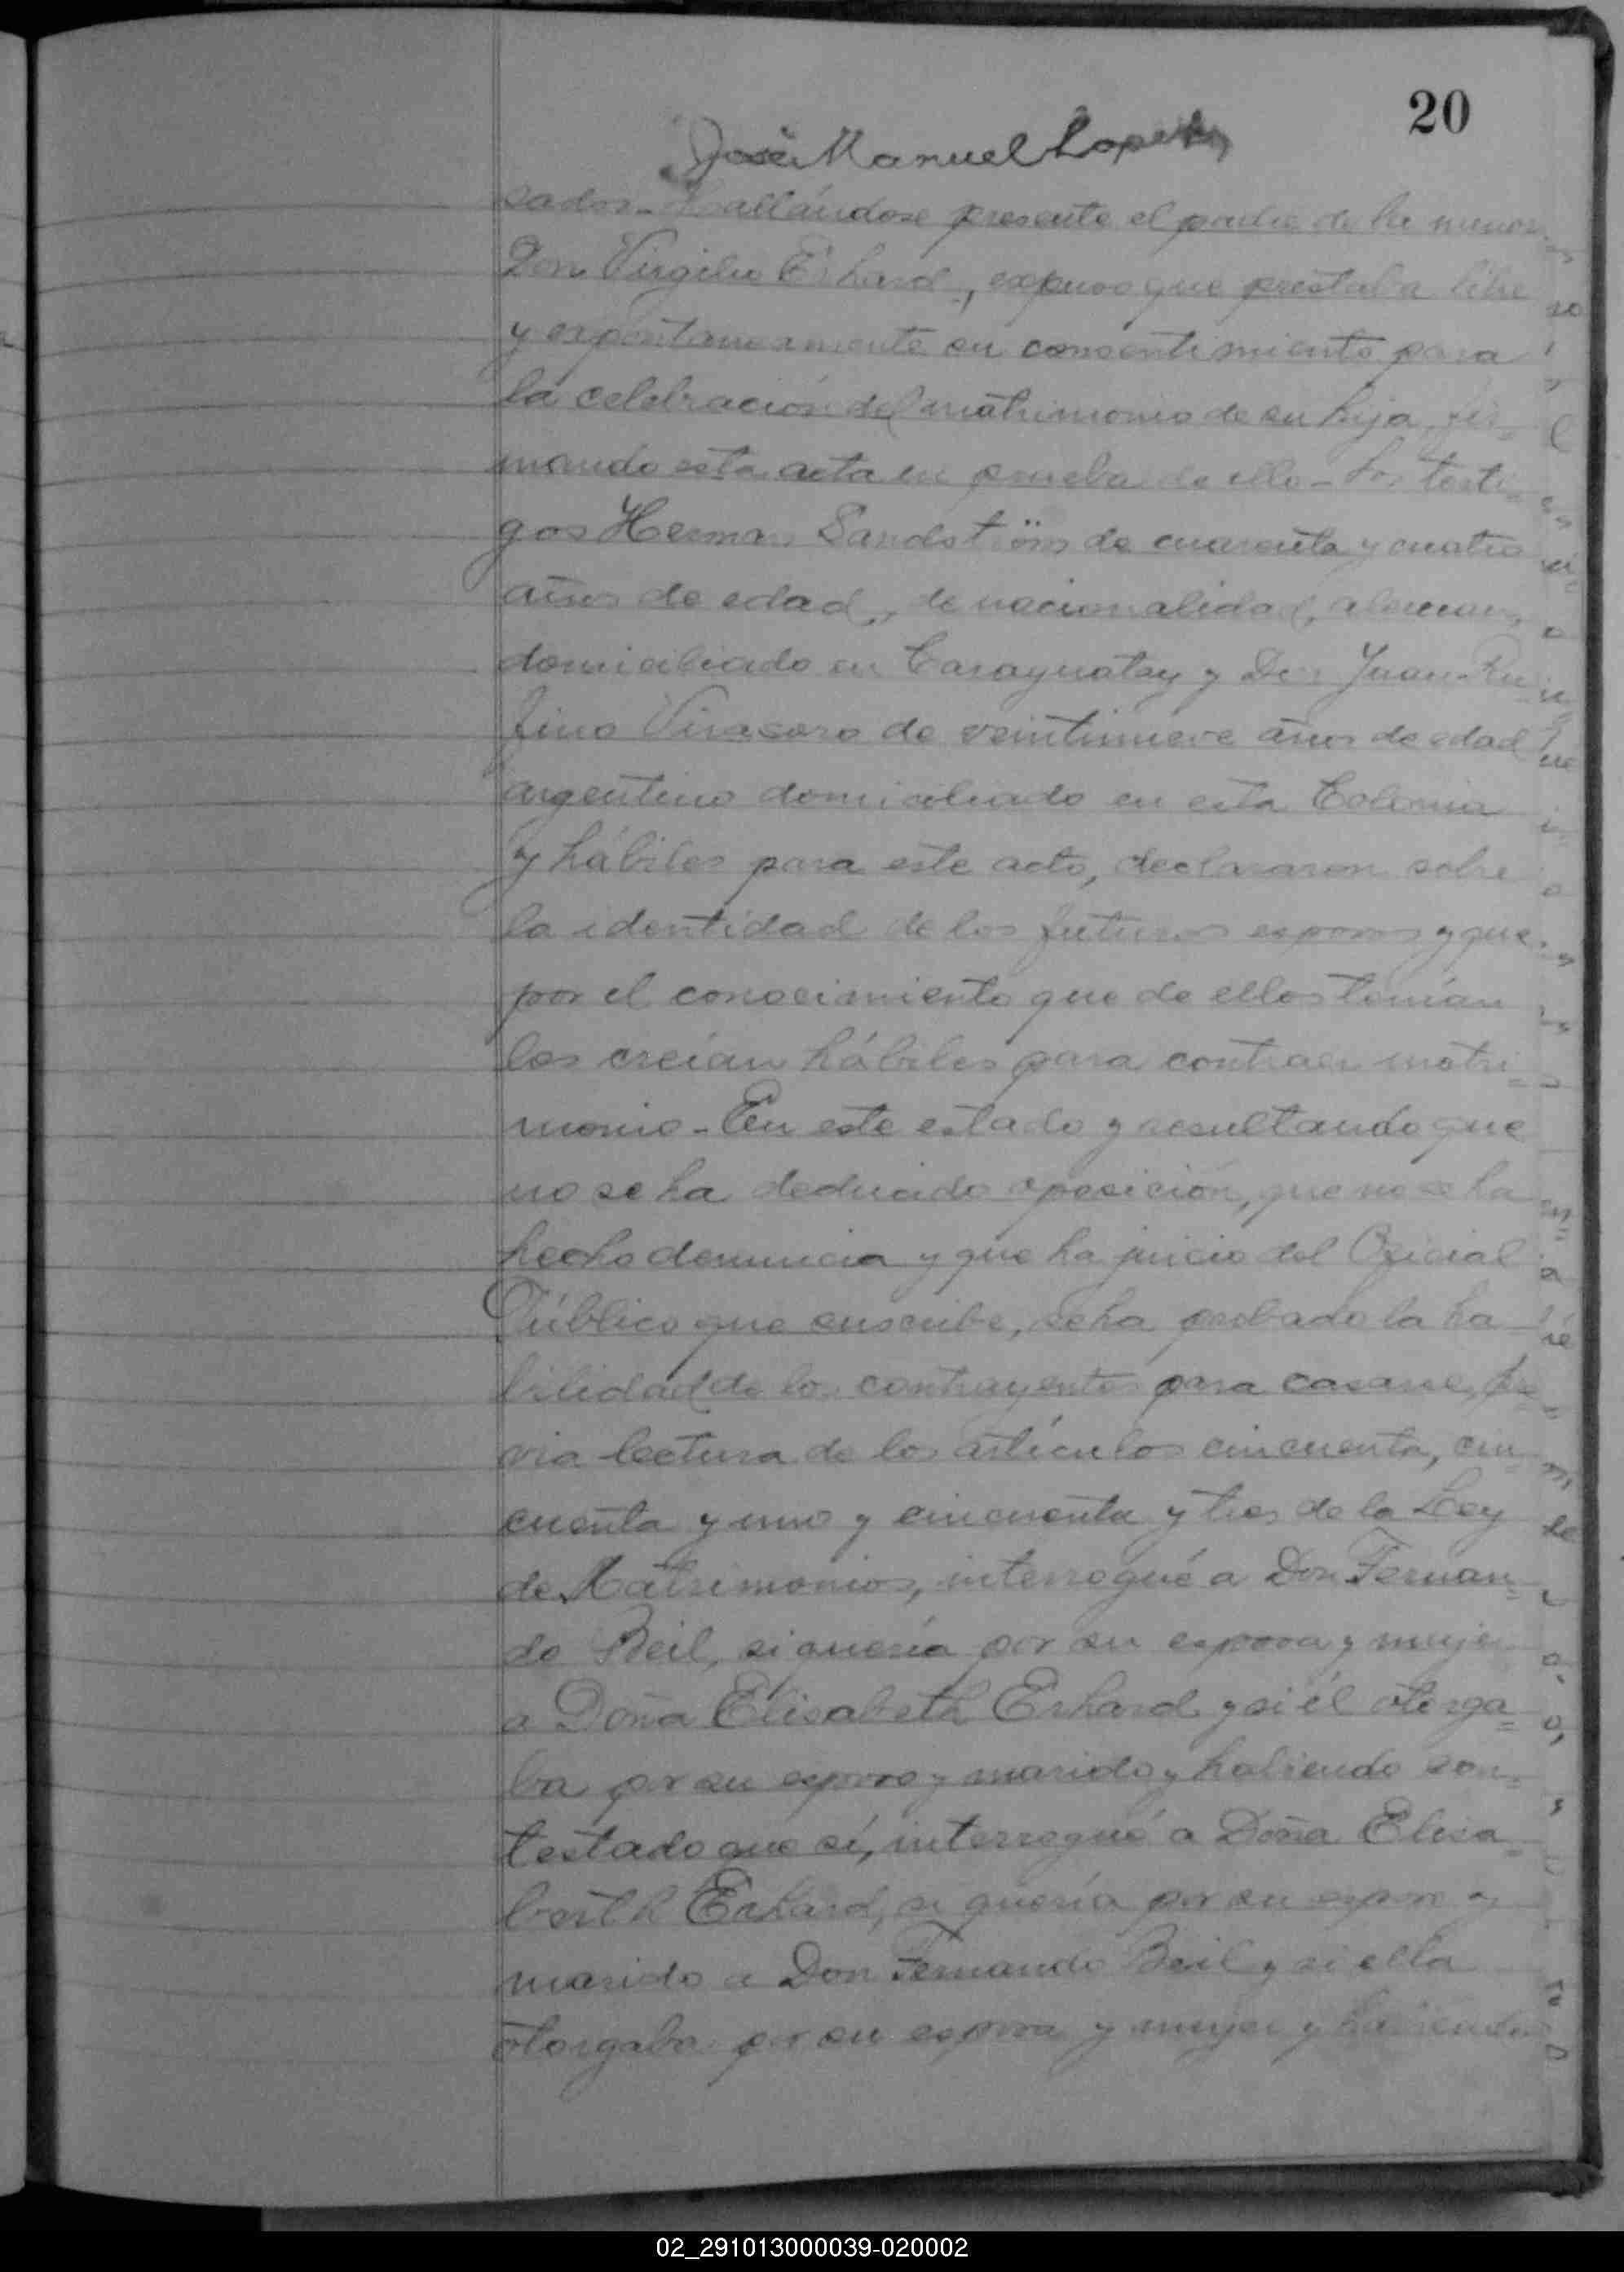 20
José Manuel Lopez
sados - Hallándose presente el padre de la menor
Don Virgilio Erhard, expuso que prestaba libre
y expontaneamente su consentimiento para
la celebración del matrimonio de su hija, fir-
mando esta acta en prueba de ello - Los testi-
gos Herman Sandström de cuarenta y cuatro
años de edad, de nacionalidad, aleman,
domiciliado en Caraguatay y Don Juan Ru
fino Virasoro de veintinueve años de edad
argentino domiciliado en esta Colonia
y hábiles para este acto, declararon sobre
la identidad de los futuros esposos y que
por el conocimiento que de ellos tenían
los creían hábiles para contraer matri=
monio - En este estado y resultando que
no se ha deducido oposición, que no se ha
hecho denuncia y que ha juicio del Oficial
Público que suscribe, se ha probado la ha-
bilidad de los contrayentes para casarse, pre
via lectura de los artículos cincuenta, cin-
cuenta y uno y cincuenta y tres de la Ley
de Matrimonios, interrogué a Don Fernan=
do Beil, si quería por su esposa y mujer
a Doña Elisabeth Erhard y si él otorga=
ba por su esposo y marido y habiendo con=
testado que sí, interrogué a Doña Elisa=
beth Erhard, si quería por su esposo y
marido a Don Fernando Beil y si ella
otorgaba por su esposa y mujer y habiendo
02_291013000039-020002